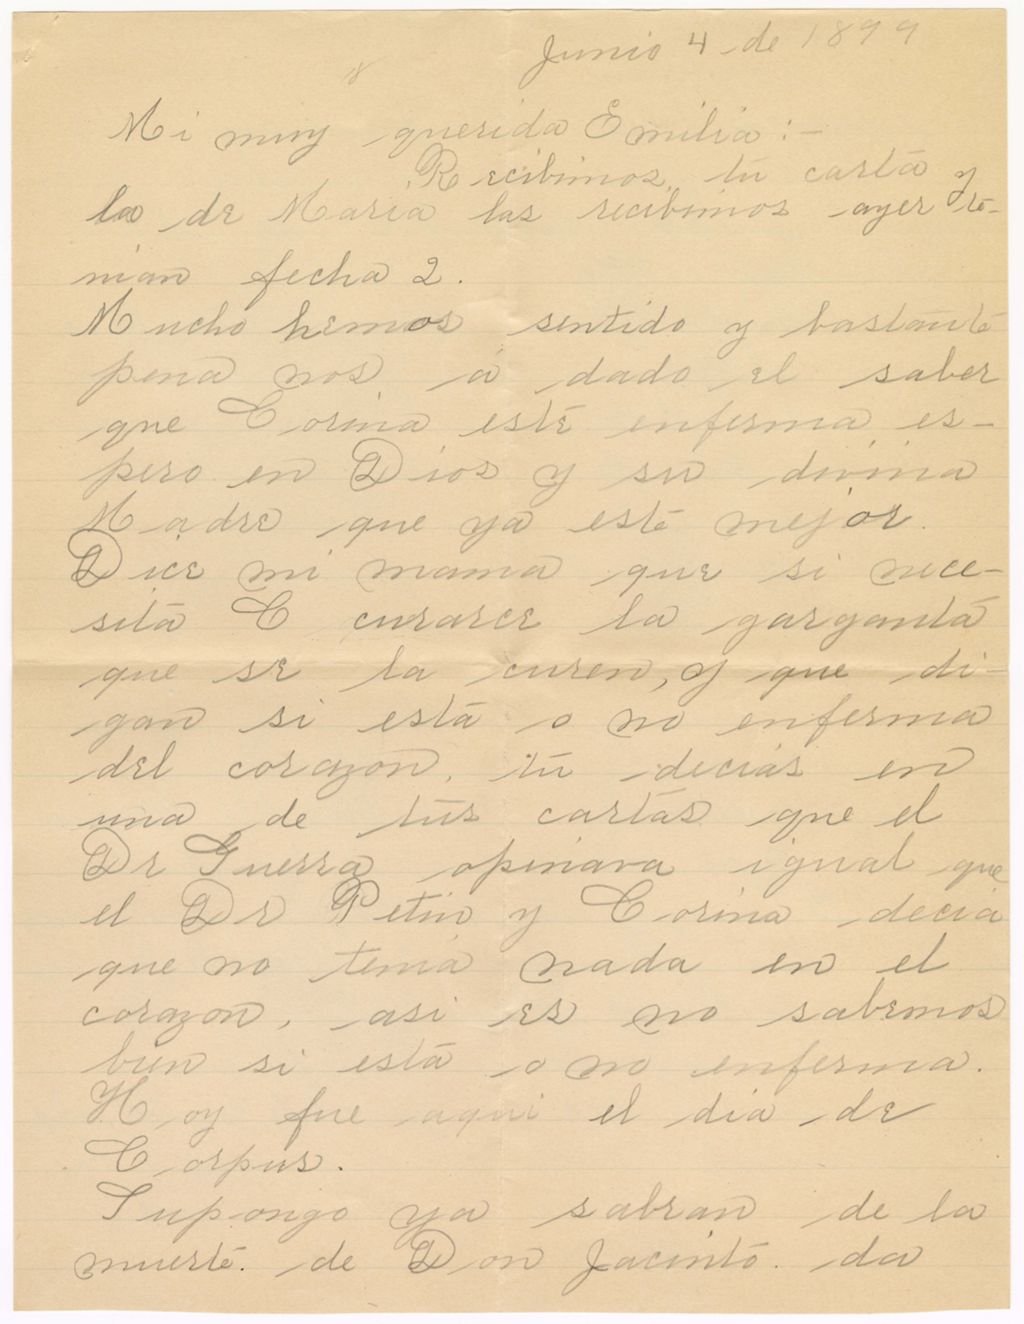 Junio 4 de 1899
Mi muy querida Emilia:-
Recibimos tu carta y
la de Maria las recibimos ayer te-
nian fecha 2.
Mucho hemos sentido y bastante
pena nos á dado el saber
que Corina esté enferma es-
pero en Dios y su divina
Madre que ya esté mejor.
Dice mi mama que si nece-
sita C curarce la garganta
que se la curen, y que di-
gan si está o no enferma
del corazon, tu decias en
una de tus cartas que el
Dr Guerra opinava igual que
el Dr Petin y Corina decia
que no tenia nada en el
corazon, asi es no sabemos
bien si está o no enferma.
Hoy fue aqui el dia de
Corpus.
Supongo ya sabran de la
muerte de Don Jacinto. da